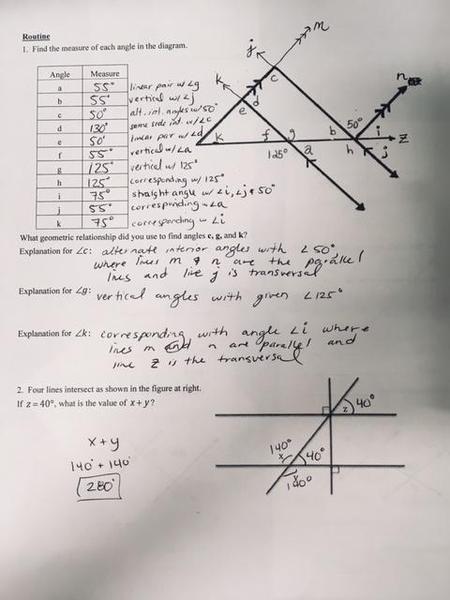 Routine
1. Find the measure of each angle in the diagram.
Angle Measure
a 55° linear pair w/ ∠g
b 55° vertical w/ ∠j
c 50° alt. int. angles w/ 50°
d 130° same side int. w/ ∠c
e 50° linear pair w/ ∠d
f 55° vertical w/ ∠a
g 125° vertical w/ 125°
h 125° corresponding w/ 125°
i 75° straight angle w/ ∠i, ∠j & 50°
j 55° corresponding w ∠a
k 75° corresponding w ∠i
m
j
c
k
d
e
n
50°
k
f
g
b
i
z
125°
a
h
j
What geometric relationship did you use to find angles c, g, and k?
Explanation for ∠c: alternate interior angles with ∠ 50°
where lines m & n are the parallel
lines and line j is transversal
Explanation for ∠g: vertical angles with given ∠125°
Explanation for ∠k: corresponding with angle ∠i where
lines m and n are parallel and
line z is the transversal
2. Four lines intersect as shown in the figure at right.
If z = 40°, what is the value of x + y?
x + y
140° + 140°
280°
z
40°
140°
x
40°
y
140°